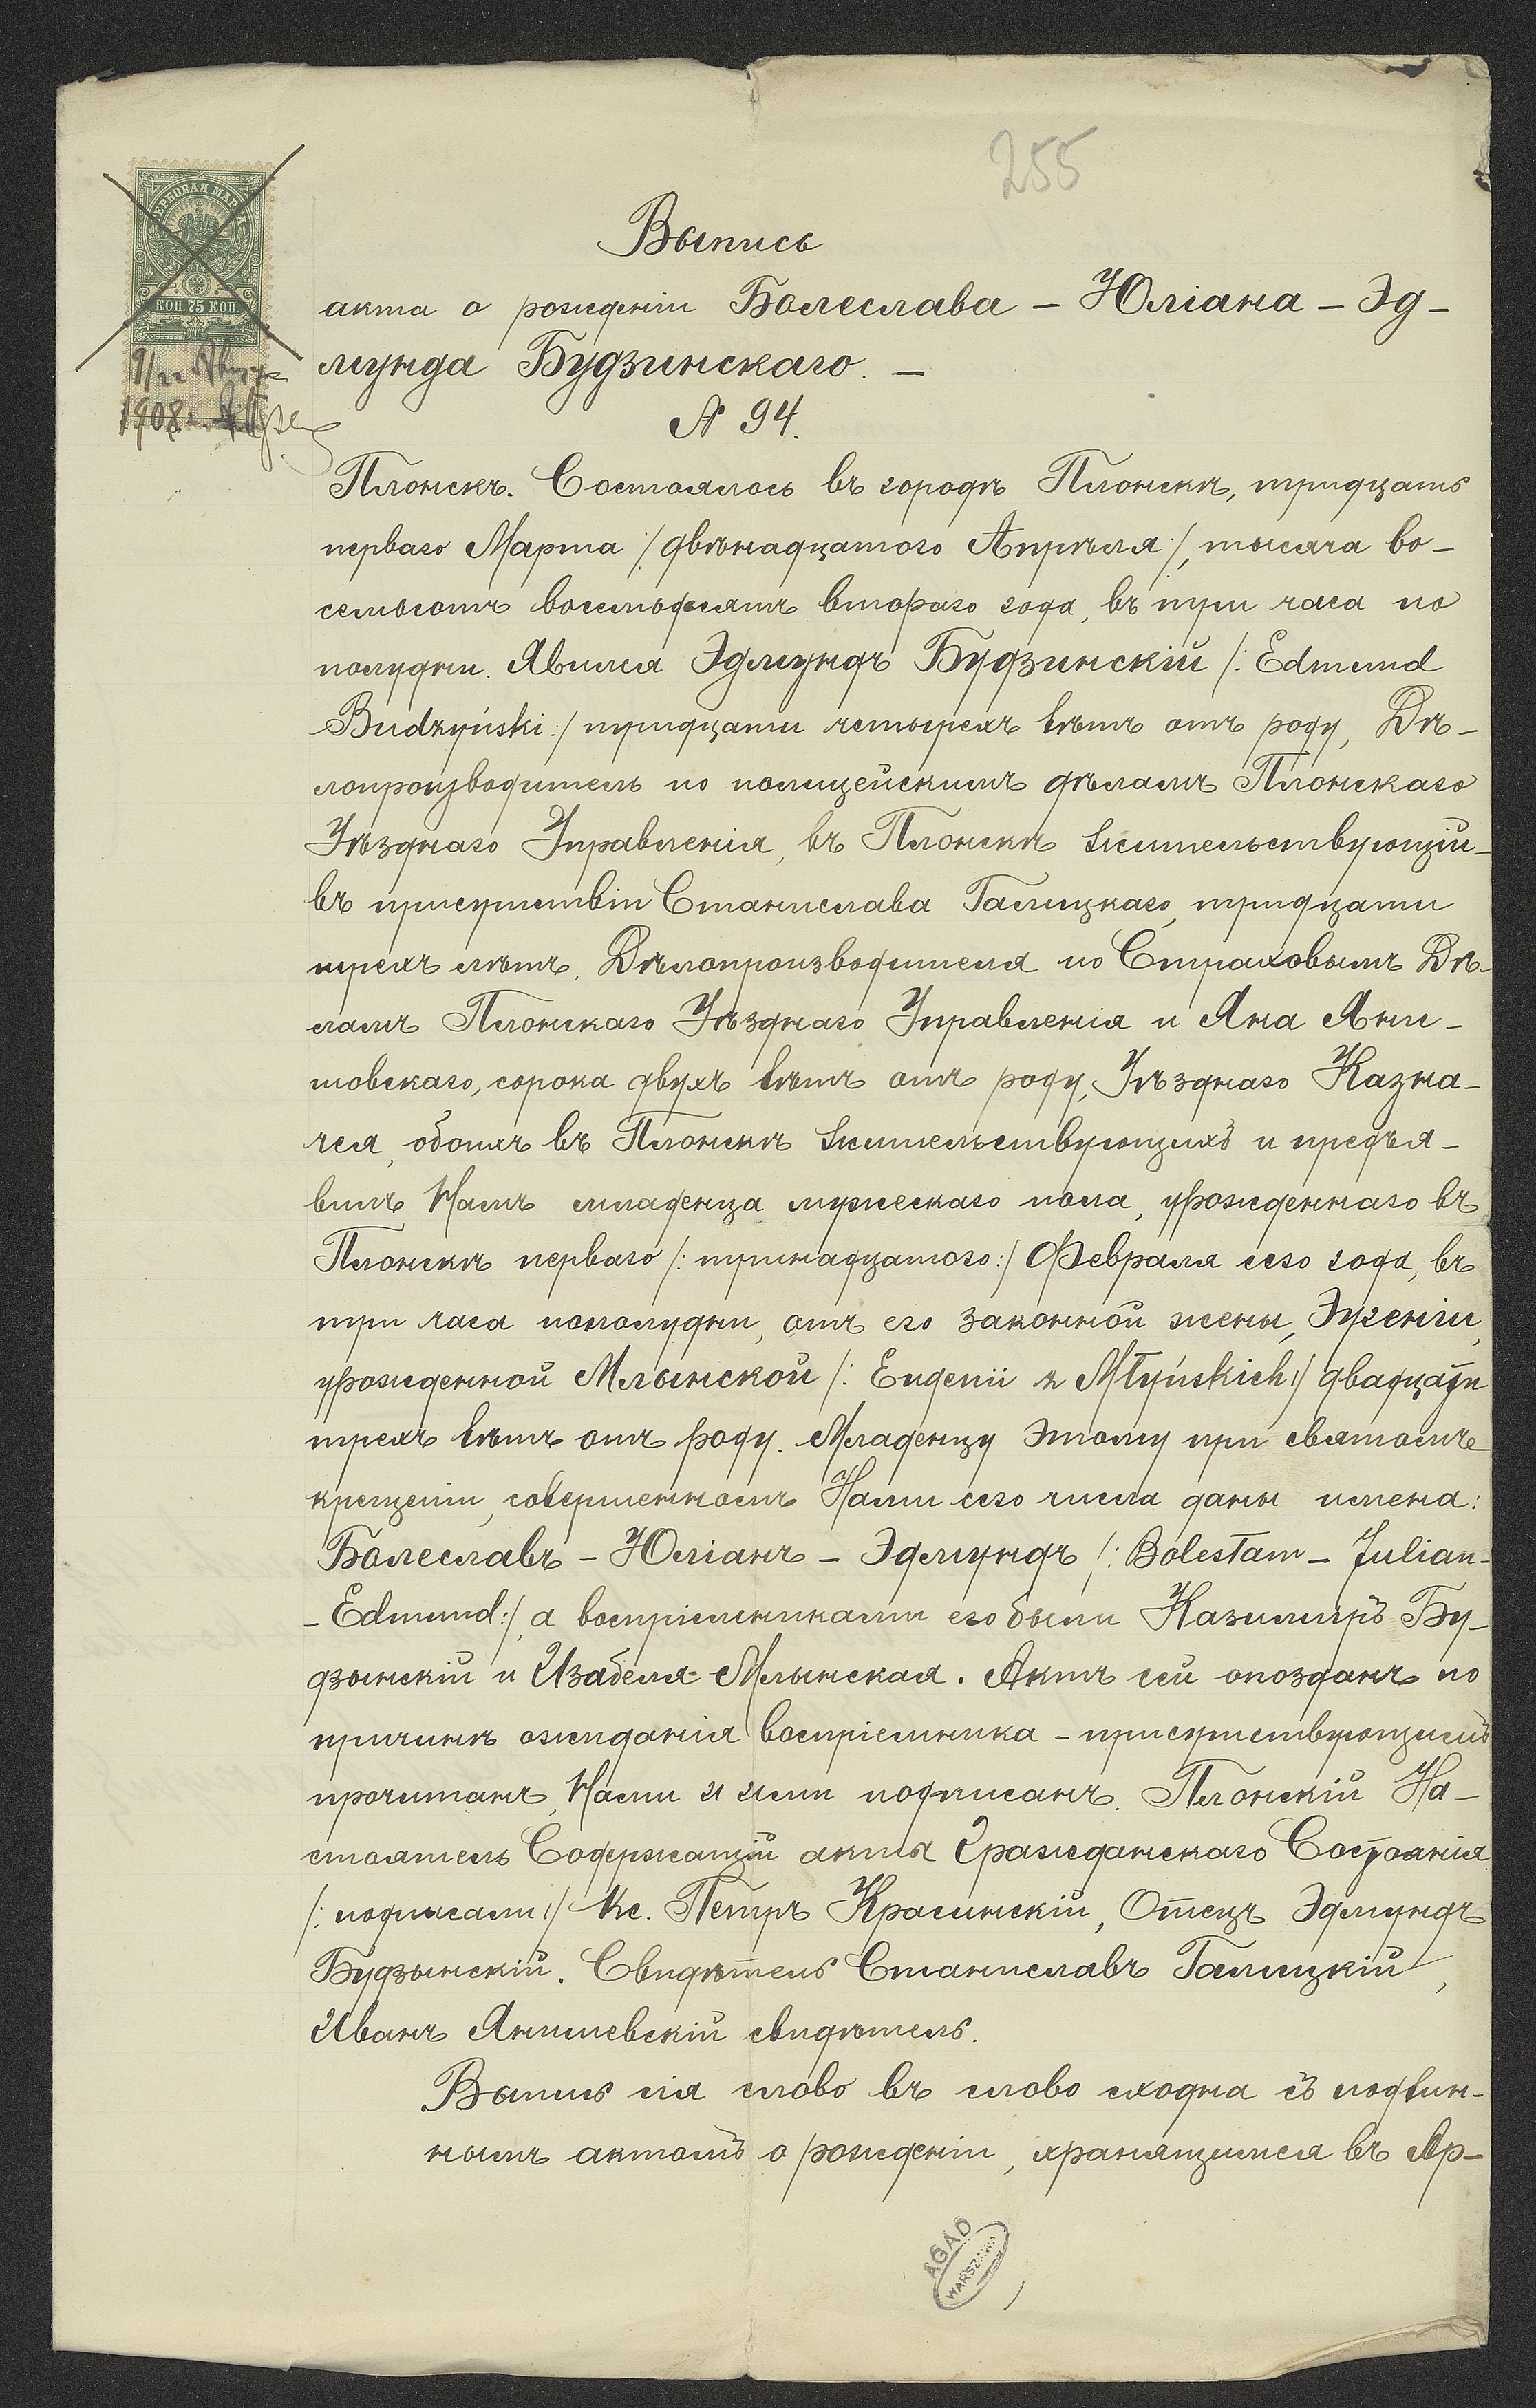 255
ГЕРБОВАЯ МАРКА
КОП. 75 КОП.
9/22
1908 г.
Выпись
акта о рожденіи Болеслава – Юліана – Эд-
мунда Будзинскаго. –
№ 94.
Плонскъ. Состоялось въ городѣ Плонскѣ, тридцать
перваго Марта /:двѣнадцатого Апрѣля:/, тысяча во-
семьсотъ восемьдесятъ втораго года, въ три часа по
полудни. Явился Эдмундъ Будзинскій /: Edmund
Budzyński:/ тридцати четырехъ лѣтъ отъ роду, Дѣ-
лопроизводитель по полицейскимъ дѣламъ Плонскаго
Уѣзднаго Управленія, въ Плонскѣ жительствующій –
въ присутствіи Станислава Галицкаго, тридцати
трехъ лѣтъ, Дѣлопроизводителя по Страховымъ Дѣ-
ламъ Плонскаго Уѣзднаго Управленія и Яна Яни-
шовскаго, сорока двухъ лѣтъ отъ роду, Уѣзднаго Казна-
чея, обоихъ въ Плонскѣ жительствующихъ и предъя-
вилъ Намъ младенца мужескаго пола, урожденнаго въ
Плонскѣ перваго /: тринадцатого:/ Февраля сего года, въ
три часа пополудни, отъ его законной жены, Эугеніи,
урожденной Млынской /: Eugenii z Młyńskich:/ двадцати
трехъ лѣтъ отъ роду. Младенцу этому при святомъ
крещеніи, совершенномъ Нами сего числа даны имена:
Болеславъ – Юліанъ – Эдмундъ /: Bolesław – Julian –
– Edmund:/, а воспріемниками его были Казимиръ Бу-
дзынскій и Изабеля Млынская. Актъ сей опозданъ по
причинѣ ожиданія воспріемника – присутствующимъ
прочитанъ, Нами и ими подписанъ. Плонскій На-
стоятель Содержащій акты Гражданскаго Состоянія
/: подписали:/ Кс. Петръ Красинскій, Отецъ Эдмундъ
Будзынскій. Свидѣтель Станиславъ Галицкій,
Иванъ Янишевскій свидѣтель.
Выпись сія слово въ слово сходна съ подлин-
нымъ актомъ о рожденіи, хранящимся въ Ар-
AGAD
WARSZAWA